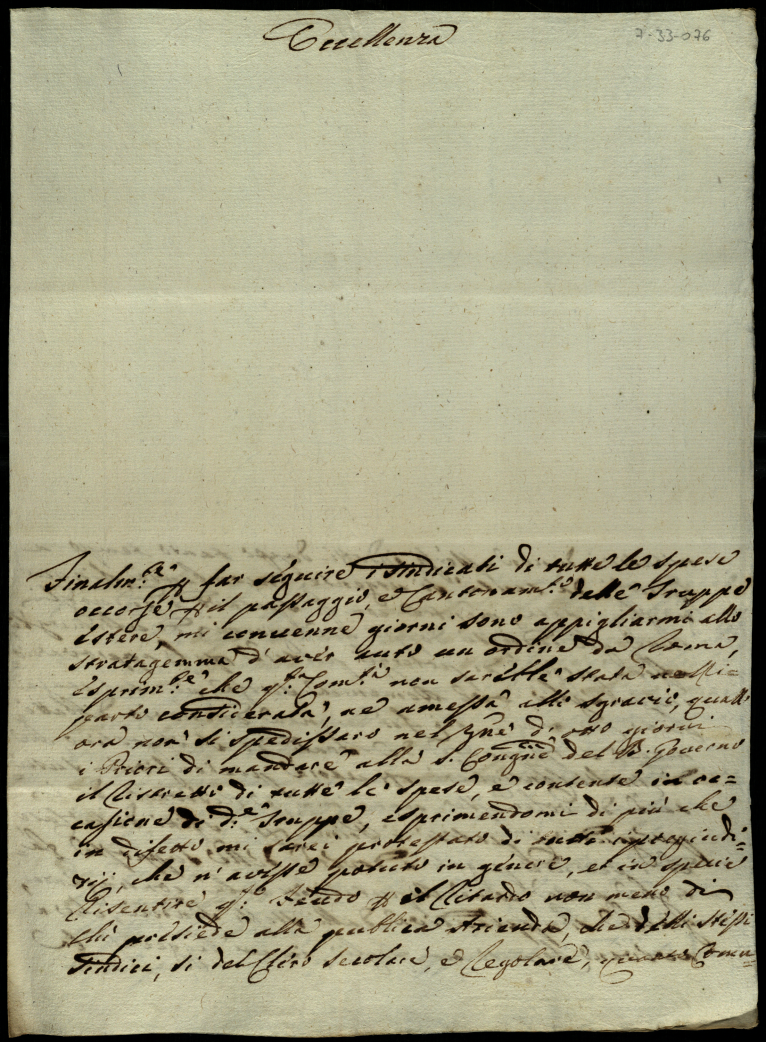 Eccellenza
7-33-076
Finalm.te p far seguire i sindicati di tutte le spese
occorse p il passaggio, e Cantonam.to delle Truppe
Estere, mi convenne giorni sono appigliarmi allo
stratagemma d'aver auto un ordine da Roma,
Esprim.te che q.ta Com.tà non sarebbe stata nelli
parto considerata, ne amessa allo sgravio, quall
ora non si spedissaro nel di otto giorni
i Priori di mandare alla S. Congne del B. Governo
il Ristretto di tutte le spese, e consense in oc=
casione di d.e Truppe, esprimendomi di più che
in difetto mi sarei protestato di tutti i pregiudi=
zij, che n'avesse potuto in genere, et in specie
Risentire q.to Feudo p il Ritardo non meno di
chi presiede alla publica Azienda, che delli stessi
Sindici, si del Clero secolare, e Regolare, Comu=